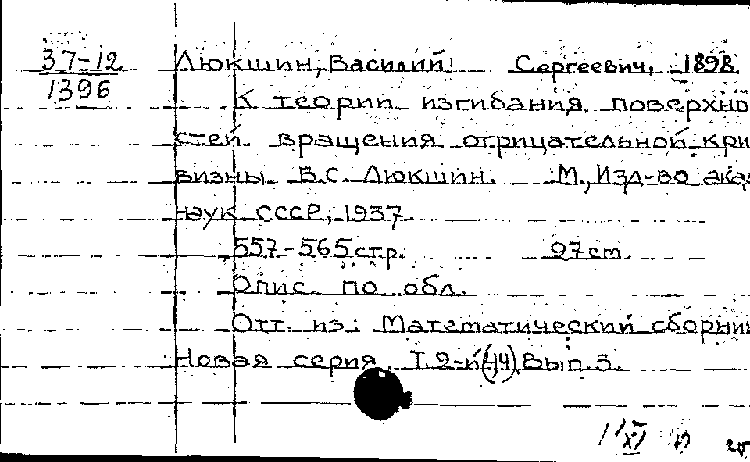 37-12
1396
Люкшин, Василий Сергеевич, 1898
К теории изгибания поверхно
стей вращения отрицательной кри
визны. В.С. Люкшин. М., Изд-во ака
наук СССР, 1937.
557-565 стр. 97 cm.
Опис. по обл.
Отт. из: Математический сборни
Новая серия, Т.2-й(44). Вып.3.